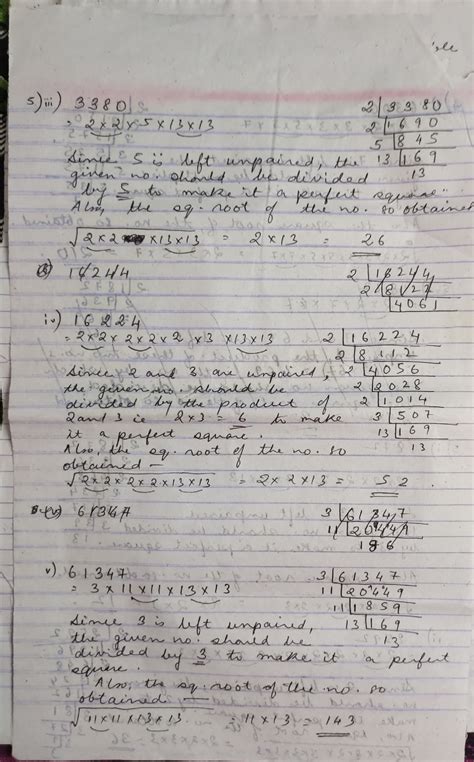 5) iii) 3380
= 2×2×5×13×13
Since 5 is left unpaired, the
given no. should be divided
by 5 to make it a perfect square.
Also, the sq. root of the no. so obtained
√2×2×13×13 = 2×13 = 26
2 | 3380
2 | 1690
5 | 845
13 | 169
13
16244
2 | 18244
2 | 8122
4061
iv) 16224
= 2×2×2×2×2×3×13×13
Since 2 and 3 are unpaired,
the given no. should be
divided by the product of
2 and 3 ie 2×3 = 6 to make
it a perfect square.
Also, the sq. root of the no. so
obtained —
√2×2×2×2×13×13 = 2×2×13 = 52
2 | 16224
2 | 8112
2 | 4056
2 | 2028
2 | 1014
3 | 507
13 | 169
13
61347
3 | 61347
11 | 20449
186
v) 61347
= 3×11×11×13×13
Since 3 is left unpaired,
the given no. should be
divided by 3 to make it a perfect
square.
Also, the sq. root of the no. so
obtained —
√11×11×13×13 = 11×13 = 143
3 | 61347
11 | 20449
11 | 1859
13 | 169
13